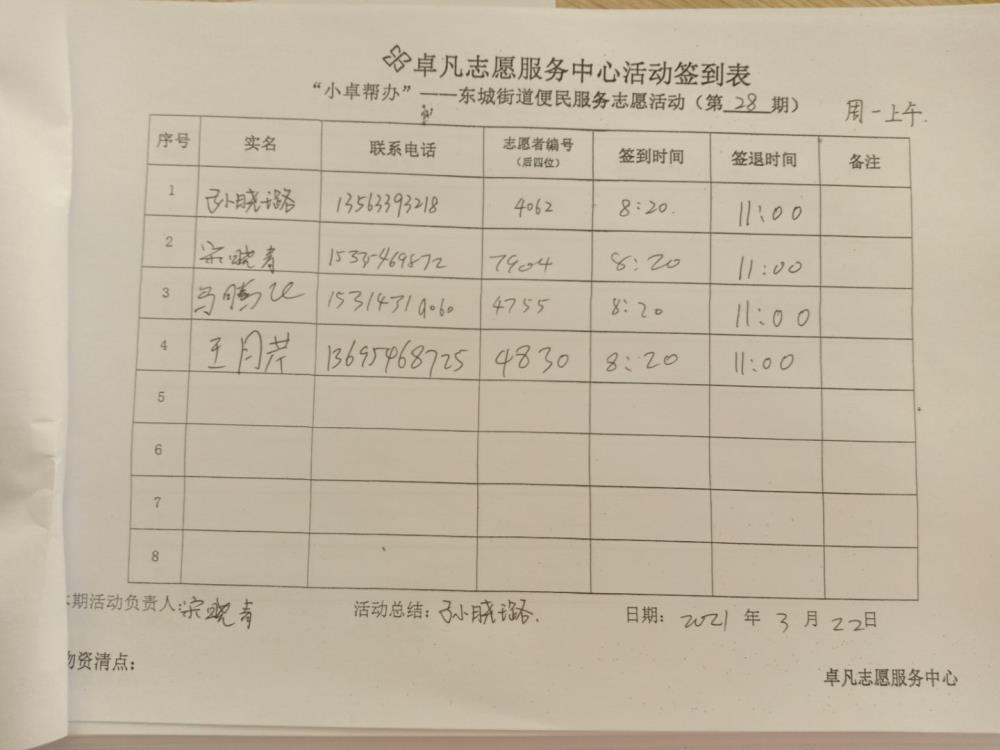 卓凡志愿服务中心活动签到表
“小卓帮办”——东城街道便民服务志愿活动（第28期）
周一上午.
序号 实名 联系电话 志愿者编号（后四位） 签到时间 签退时间 备注
1 孙晓璐 13563393218 4062 8:20. 11:00
2 宋晓青 15335469872 7904 8:20 11:00
3 15314319060 4755 8:20 11:00
4 王月芹 13695468725 4830 8:20 11:00
5
6
7
8
本期活动负责人:宋晓青 活动总结:孙晓璐. 日期: 2021 年 3 月 22日
物资清点:
卓凡志愿服务中心